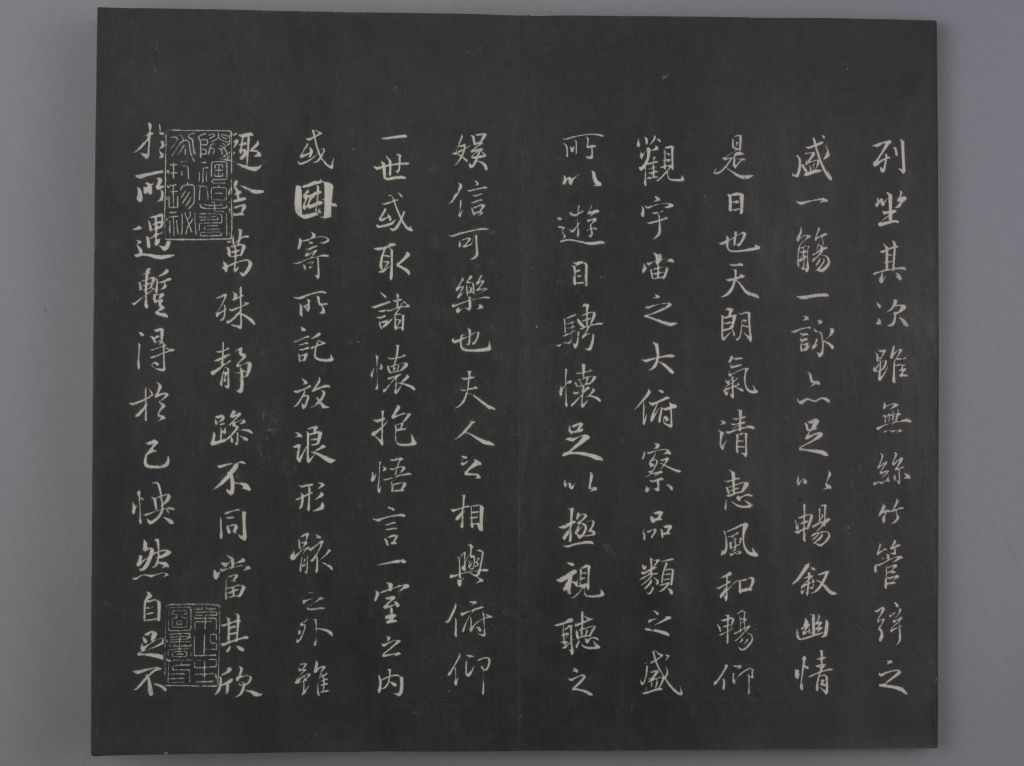 列坐其次雖無絲竹管弦之
盛一觴一詠亦足以暢叙幽情
是日也天朗氣清惠風和暢仰
觀宇宙之大俯察品類之盛
所以遊目騁懷足以極視聽之
娛信可樂也夫人之相與俯仰
一世或取諸懷抱悟言一室之内
或因寄所託放浪形骸之外雖
趣舍萬殊静躁不同當其欣
於所遇暫得於己怏然自足不